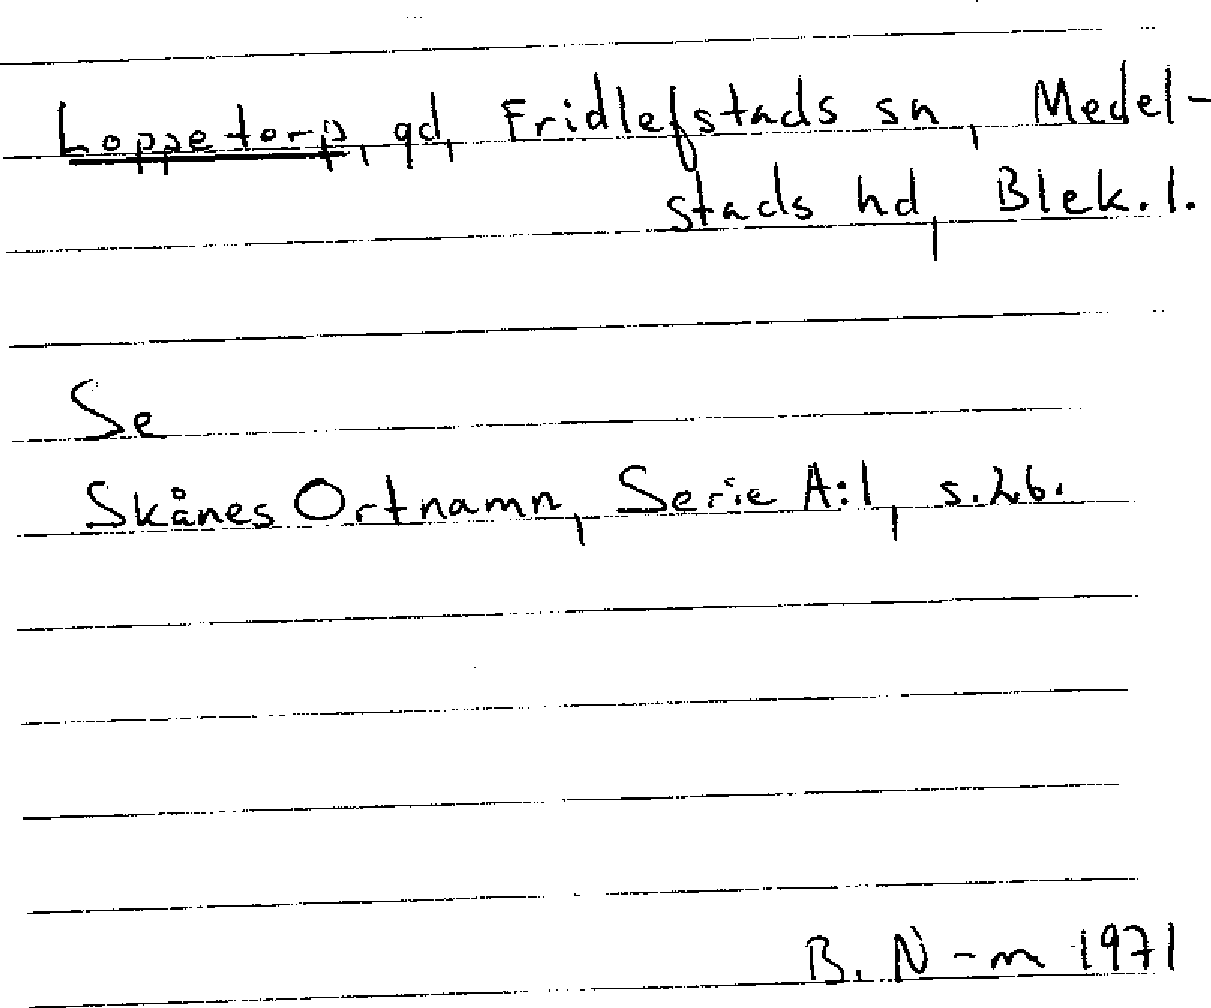 Loppetorp, gd, Fridlefstads sn, Medel-
stads hd, Blek. l.
Se
Skånes Ortnamn, Serie A:1, s. 26.
B. N-m 1971